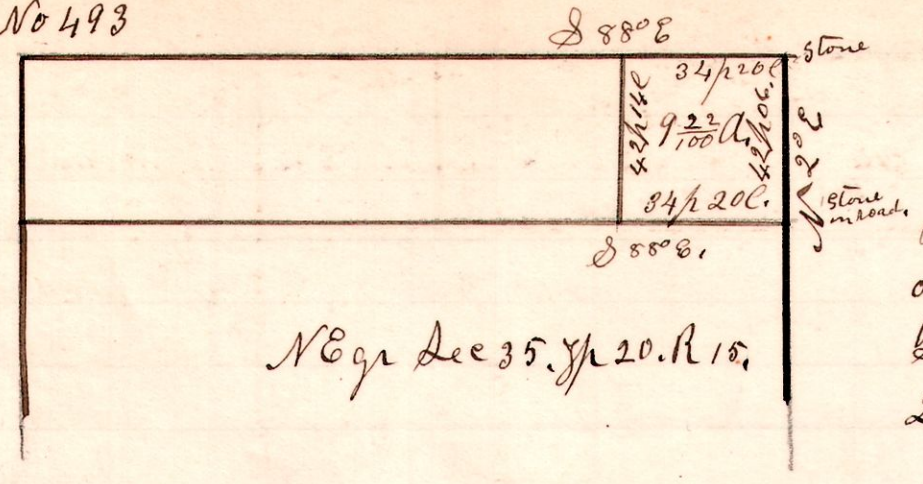 No 493
S 88° E
Stone
34p 20l
42p 14l
9 22/100 A.
42p 06.
N 2° E
34p 20l.
Stone
in road.
S 88° E.
NE qr Sec 35. Tp 20. R 15.